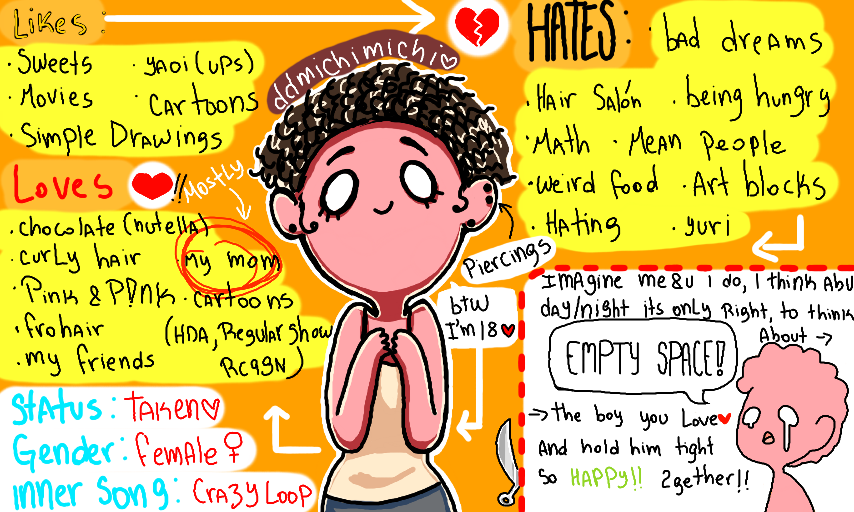 Likes:
• Sweets • yaoi (ups)
• Movies • cartoons
• Simple Drawings
Loves !!
Mostly
• chocolate (nutella)
• curly hair my mom
• Pink & P!nk • cartoons
• frohair (HDA, Regular Show
• my friends RC9GN)
Status: Taken
Gender: female ♀
inner song: Crazy Loop
ddmichimichi
Piercings
btw
I'm 18
HATES: • bad dreams
• Hair Salón • being hungry
• Math • Mean people
• weird food • Art blocks
• Hating • yuri
IMAgine me & u i do, I think Abu
day/night its only Right, to think
About →
EMPTY SPACE!
→ the boy you Love
And hold him tight
So HAPPY!! 2gether!!